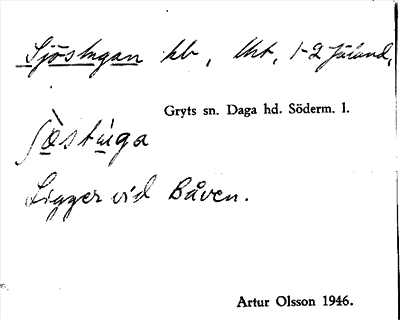 Sjöstugan hb, Urt, 1-2
Gryts sn. Daga hd. Söderm. l.
Ligger vid Båven.
Artur Olsson 1946.